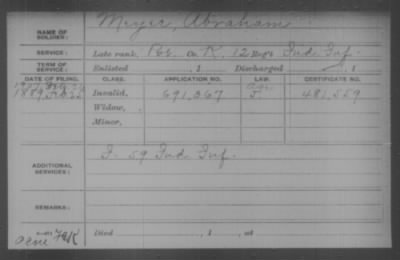 NAME OF SOLDIER: Meyer, Abraham
SERVICE: Late rank, Co. K, 12 Reg't Ind. Inf.
TERM OF SERVICE: Enlisted , 1 Discharged , 1
DATE OF FILING. CLASS. APPLICATION NO. LAW. CERTIFICATE NO.
1889, Feb 25 Invalid, 691,367 481,559
Widow,
Minor,
ADDITIONAL SERVICES: I. 59 Ind. Inf.
REMARKS:
Died , 1 , at